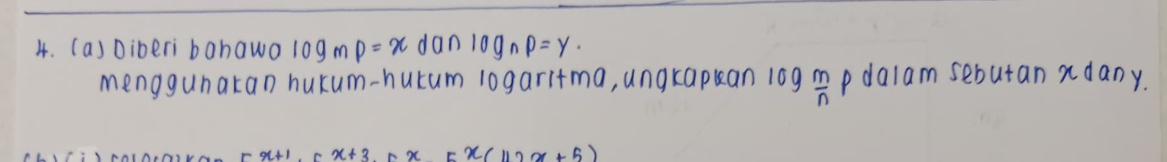 4. (a) Diberi bahawa log m p = x dan log n p = y.
menggunakan hukum-hukum logaritma, ungkapkan log m/n p dalam sebutan x dan y.